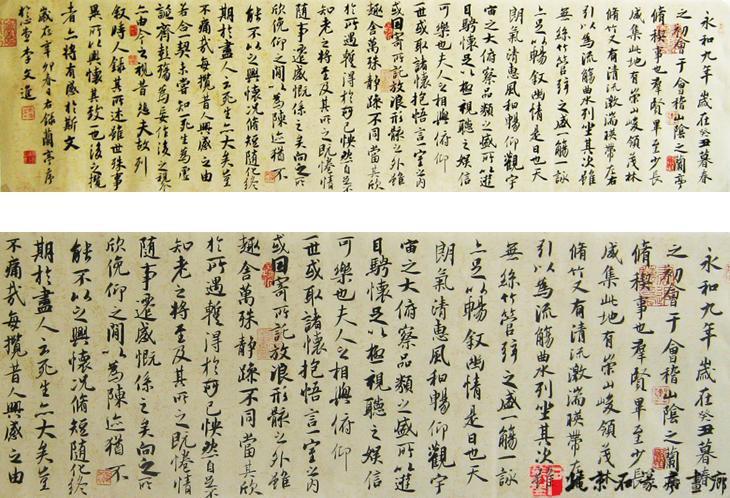 永和九年歲在癸丑暮春
之初會于會稽山陰之蘭亭
脩稧事也群賢畢至少長
咸集此地有崇山峻領茂林
脩竹又有清流激湍暎帶左右
引以為流觴曲水列坐其次雖
無絲竹管弦之盛一觴一詠
亦足以暢敘幽情是日也天
朗氣清惠風和暢仰觀宇
宙之大俯察品類之盛所以遊
目騁懷足以極視聽之娛信
可樂也夫人之相與俯仰
一世或取諸懷抱悟言一室之內
或因寄所託放浪形骸之外雖
趣舍萬殊靜躁不同當其欣
於所遇暫得於己怏然自足不
知老之將至及其所之既惓情
隨事遷感慨係之矣向之所
欣俛仰之間以為陳迹猶不
能不以之興懷況脩短隨化終
期於盡古人云死生亦大矣豈
不痛哉每攬昔人興感之由
若合一契未嘗知一死生為虛
誕齊彭殤為妄作後之視
今亦由今之視昔悲夫故列
敘時人錄其所述雖世殊事
異所以興懷其致一也後之攬
者亦將有感於斯文
歲在辛卯春日右錄蘭亭序
李文進
永和九年歲在癸丑暮春
之初會于會稽山陰之蘭亭
脩稧事也群賢畢至少長
咸集此地有崇山峻領茂林
脩竹又有清流激湍暎帶左右
引以為流觴曲水列坐其次雖
無絲竹管弦之盛一觴一詠
亦足以暢敘幽情是日也天
朗氣清惠風和暢仰觀宇
宙之大俯察品類之盛所以遊
目騁懷足以極視聽之娛信
可樂也夫人之相與俯仰
一世或取諸懷抱悟言一室之內
或因寄所託放浪形骸之外雖
趣舍萬殊靜躁不同當其欣
於所遇暫得於己怏然自足不
知老之將至及其所之既惓情
隨事遷感慨係之矣向之所
欣俛仰之間以為陳迹猶不
能不以之興懷況脩短隨化終
期於盡古人云死生亦大矣豈
不痛哉每攬昔人興感之由